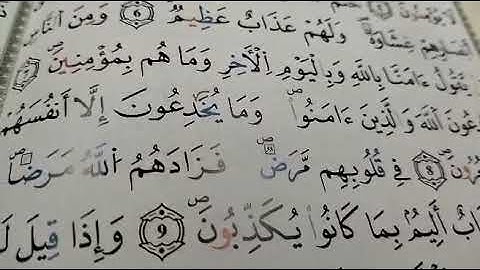 أَبْصَٰرِهِمْ غِشَٰوَةٌ وَلَهُمْ عَذَابٌ عَظِيمٌ 6 وَمِنَ اَلنَّاسِ
يَقُولُ ءَامَنَّا بِاللَّهِ وَبِالْيَوْمِ اِلْأَخِرِ وَمَا هُم بِمُؤْمِنِينَ 7
دِعُونَ اَللَّهَ وَالَّذِينَ ءَامَنُواْ وَمَا يُخَٰدِعُونَ إِلَّا أَنفُسَهُمْ
عُرُونَ 8 فِي قُلُوبِهِم مَّرَضٌ فَزَادَهُمُ اُللَّهُ مَرَضًا
ابٌ أَلِيمٌ بِمَا كَانُواْ يُكَذِّبُونَ 9 وَإِذَا قِيلَ لَ